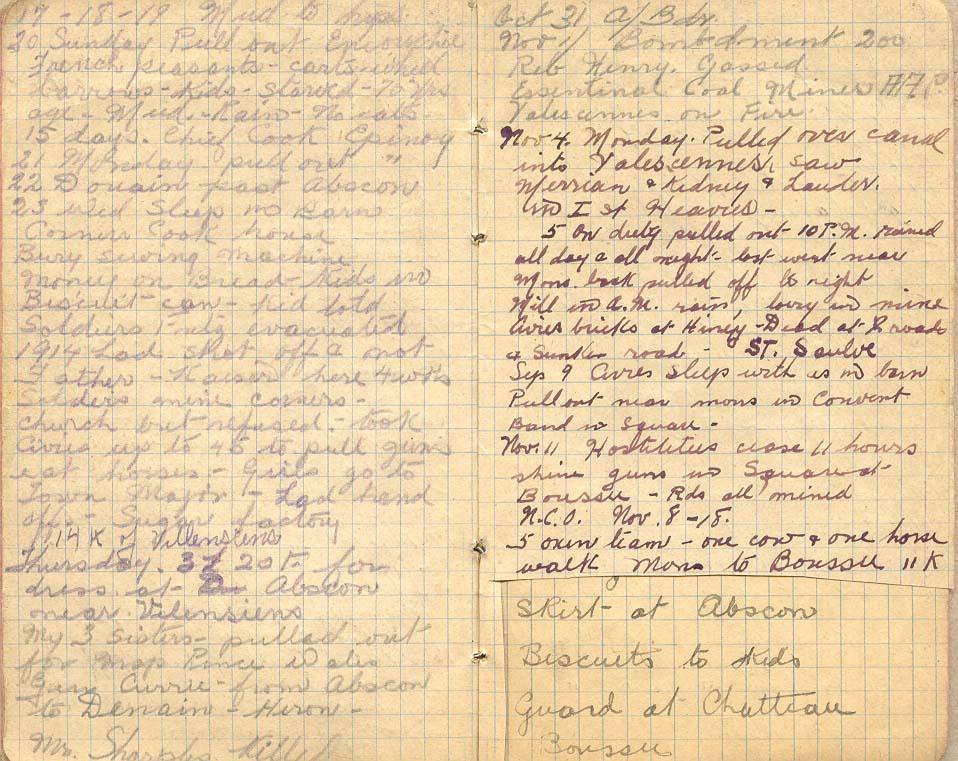 17 - 18 - 19 Mud to
20 Sunday Pull out
French peasants - carts wheel
barrows - Kids - starved - 70 yrs
age - Mud - Rain - No eats
15 days. Chief Cook Epinoy
21 Monday - pull out "
22 Douain past Abscon
23 Wed Sleep in Barn
Corner Cook house
Bury sewing machine
money on Bread - Kids in
Biscuit can - Kid told
Soldiers Fritz evacuated
1914 Lad shot off a
Father - Kaiser here 4 wks
Solders mine corners -
church but refused - took
Civies up to 45 to pull guns
eat horses - Girls go to
Town Major - Lad hand
off - Sugar factory
14 K of Vilensiens
Thursday. 31 20 F. for
dress at Abscon
near Vilensiens
My 3 sisters - pulled out
for Map Prince Wales
Gen Currie - from Abscon
to Denain - Heron -
Mr. Sharples Killed
Oct 31 A/Bdr
Nov 1/ Bombdment 200
Reb Henry. Gassed
Essentinal Coal Miner
Valescennes on Fire
Nov 4. Monday. Pulled over canal
into Valescennes, saw
Merrian & Kidney & Lauder.
in I st Heavies -
5 On duty pulled out 10 P.M. rained
all day & all night - lost went near
Mons. back pulled off to right
Will in a.m. rain, lorry in mine
Civies bricks at Hiney - Dead at X roads
& Sunken road - ST. Saulve
Sep 9 Civies Sleep with us in barn
Pull out near mons in Convent
Band in Square -
Nov. 11 Hostilities cease 11 hours
shine guns in Square at
Boussu - Rds all mined
N.C.O. Nov. 8 - 18.
5 oxen team - one cow & one horse
walk Mons to Boussu 11 K
Skirt at Abscon
Biscuits to Kids
Guard at Chatteau
Boussu